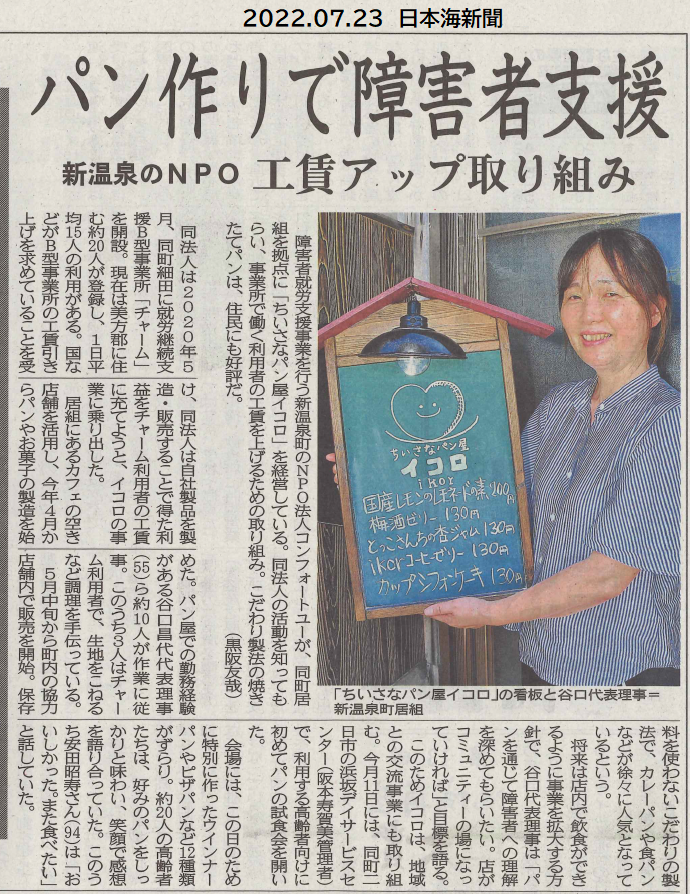 2022.07.23 日本海新聞
パン作りで障害者支援
新温泉のNPO 工賃アップ取り組み
障害者就労支援事業を行う新温泉町のNPO法人コンフォートユーが、同町居
組を拠点に「ちいさなパン屋イコロ」を経営している。同法人の活動を知っても
らい、事業所で働く利用者の工賃を上げるための取り組み。こだわり製法の焼き
たてパンは、住民にも好評だ。
（黒阪友哉）
ちいさなパン屋
イコロ
ikor
国産レモンのレモネードの素 700円
梅酒ゼリー 130円
とっこさんちの杏ジャム 130円
ikorコーヒーゼリー 130円
カップシフォンケーキ 130円
「ちいさなパン屋イコロ」の看板と谷口代表理事＝
新温泉町居組
同法人は2020年5
月、同町細田に就労継続支
援B型事業所「チャーム」
を開設。現在は美方郡に住
む約20人が登録し、1日平
均15人の利用がある。国な
どがB型事業所の工賃引き
上げを求めていることを受
け、同法人は自社製品を製
造・販売することで得た利
益をチャーム利用者の工賃
に充てようと、イコロの事
業に乗り出した。
居組にあるカフェの空き
店舗を活用し、今年4月か
らパンやお菓子の製造を始
めた。パン屋での勤務経験
がある谷口昌代代表理事
(55)ら約10人が作業に従
事。このうち3人はチャー
ム利用者で、生地をこねる
など調理を手伝っている。
5月中旬から町内の協力
店舗内で販売を開始。保存
料を使わないこだわりの製
法で、カレーパンや食パン
などが徐々に人気となって
いるという。
将来は店内で飲食ができ
るように事業を拡大する方
針で、谷口代表理事は「パ
ンを通じて障害者への理解
を深めてもらいたい。店が
コミュニティーの場になっ
ていければ」と目標を語る。
このためイコロは、地域
との交流事業にも取り組
む。今月11日には、同町二
日市の浜坂デイサービスセ
ンター（阪本寿賀美管理者）
で、利用する高齢者向けに
初めてパンの試食会を開い
た。
会場には、この日のため
に特別に作ったウインナー
パンやピザパンなど12種類
がずらり。約20人の高齢者
たちは、好みのパンをしっ
かりと味わい、笑顔で感想
を語り合っていた。このう
ち安田昭寿さん(94)は「お
いしかった。また食べたい」
と話していた。